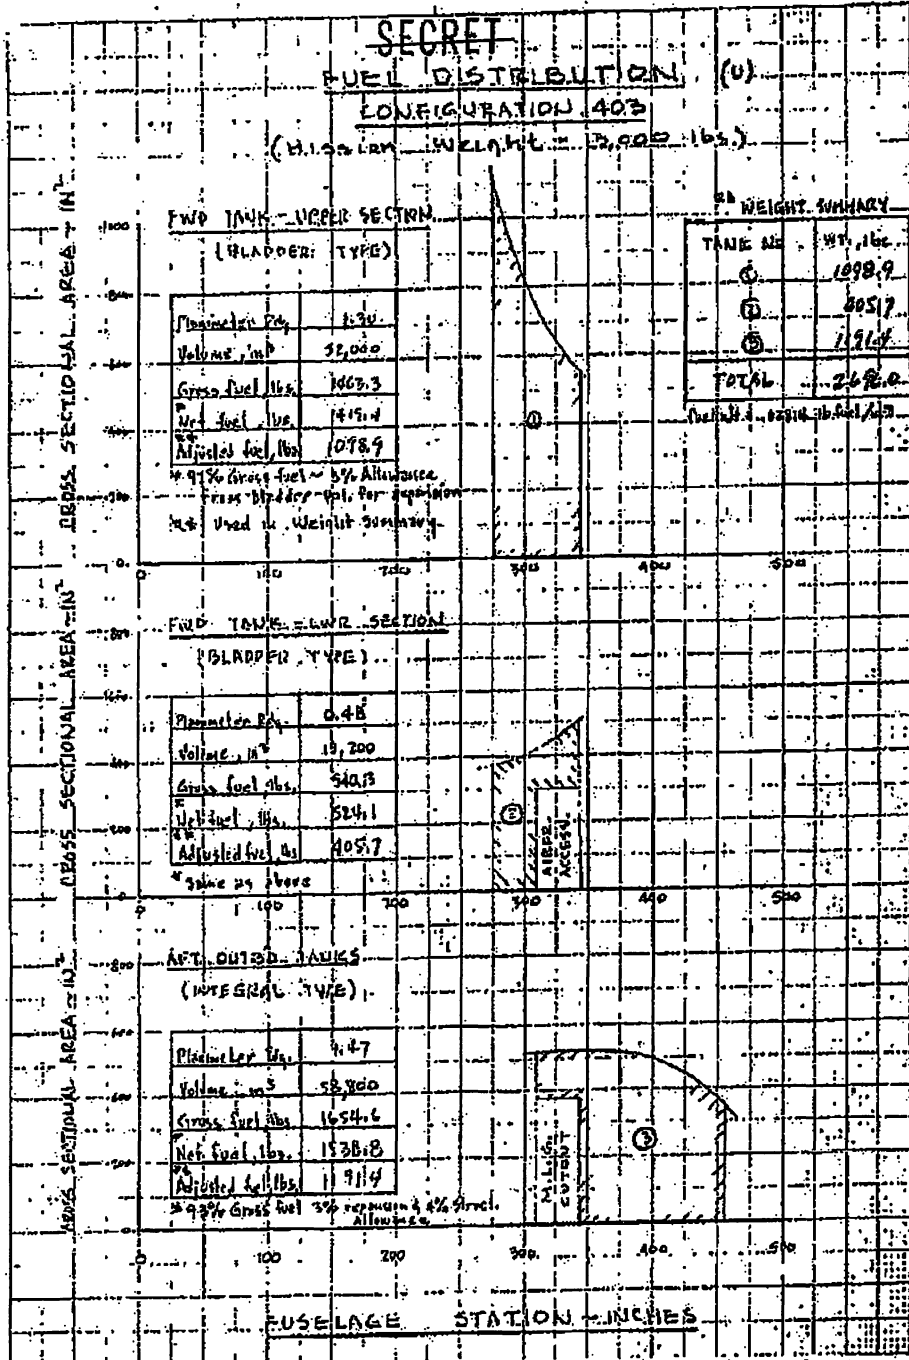 SECRET
FUEL DISTRIBUTION (U)
CONFIGURATION 403
(Mission Weight = 3,000 lbs.)
** WEIGHT SUMMARY
TANK No. WT., lbs.
① 1098.9
② 405.7
③ 1191.4
TOTAL 2696.0
FWD TANK - UPPER SECTION
(BLADDER TYPE)
Planimeter Rdg. 1.30
Volume, in³ 52,000
Gross fuel, lbs. 1463.3
* Net fuel, lbs. 1419.4
** Adjusted fuel, lbs 1098.9
* 97% Gross fuel ~ 3% Allowance
from bladder vol. for expansion
** Used in Weight Summary
CROSS SECTIONAL AREA ~ IN²
1000
800
600
400
200
0
①
0 100 200 300 400 500
FWD TANK - LWR SECTION
(BLADDER TYPE)
Planimeter Rdg. 0.48
Volume, in³ 19,200
Gross fuel, lbs. 540.3
* Net fuel, lbs. 524.1
** Adjusted fuel, lbs 405.7
* Same as above
CROSS SECTIONAL AREA ~ IN²
800
600
400
200
0
②
ACCESS.
0 100 200 300 400 500
AFT OUTBD TANKS
(INTEGRAL TYPE)
Planimeter Rdg. 1.47
Volume in³ 58,800
Gross fuel, lbs 1654.6
* Net fuel, lbs. 1538.8
** Adjusted fuel, lbs. 1191.4
* 93% Gross fuel 3% expansion & 4% Struct.
Allowance
CROSS SECTIONAL AREA ~ IN²
800
600
400
200
0
M.L.G.
CUTOUT
③
0 100 200 300 400 500
FUSELAGE STATION ~ INCHES